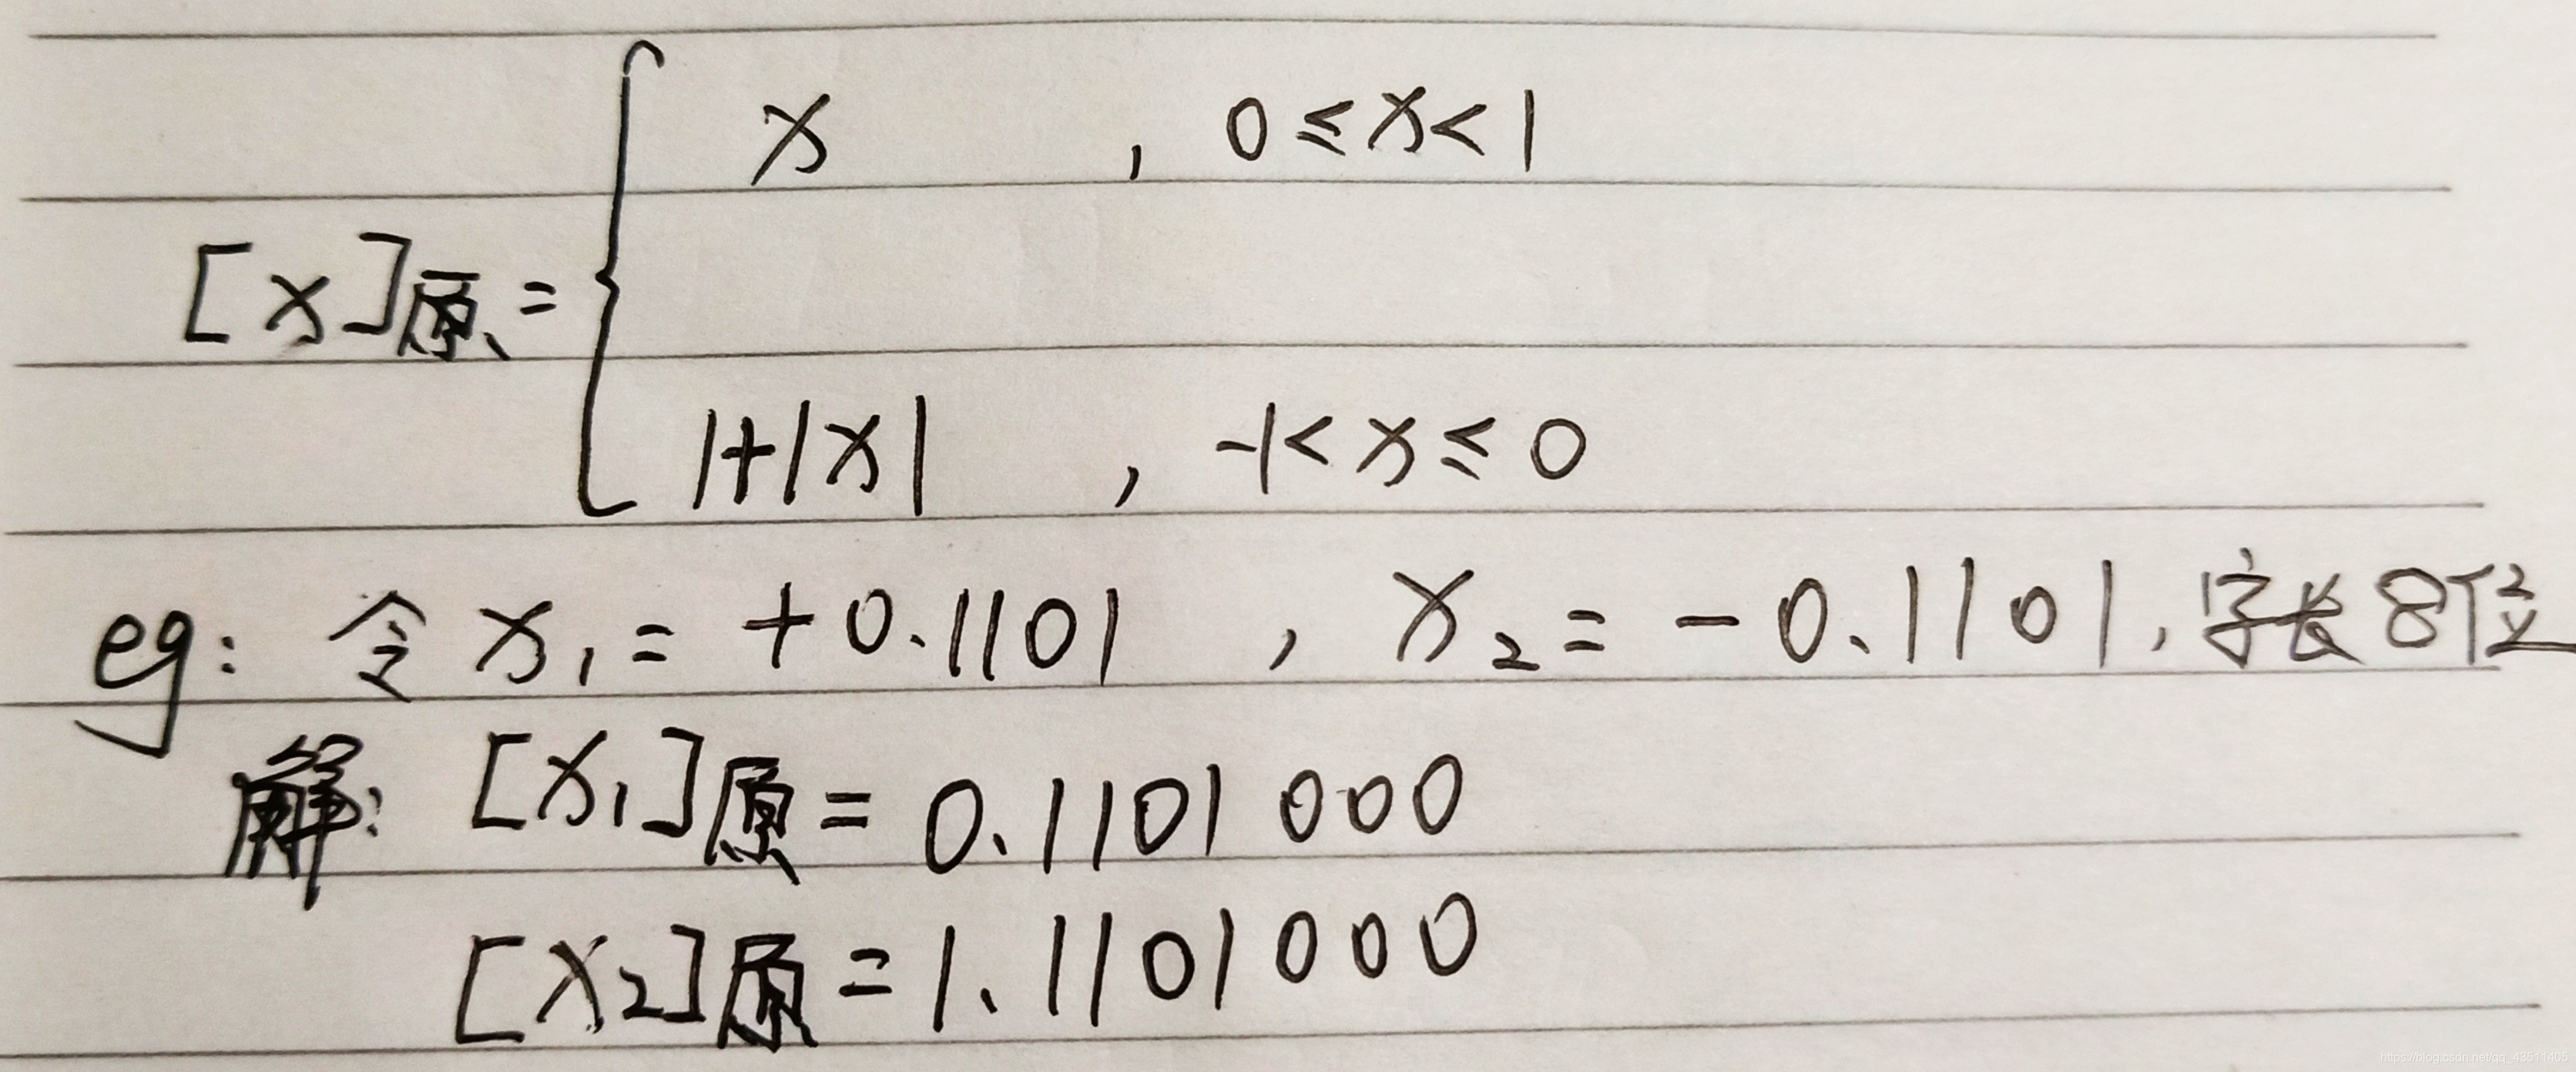 x , 0≤x<1
[x]原=
1+|x| , -1<x≤0
eg: 令x₁=+0.1101 , x₂=-0.1101,字长8位
解: [x₁]原=0.1101000
[x₂]原=1.1101000
https://blog.csdn.net/qq_43511405